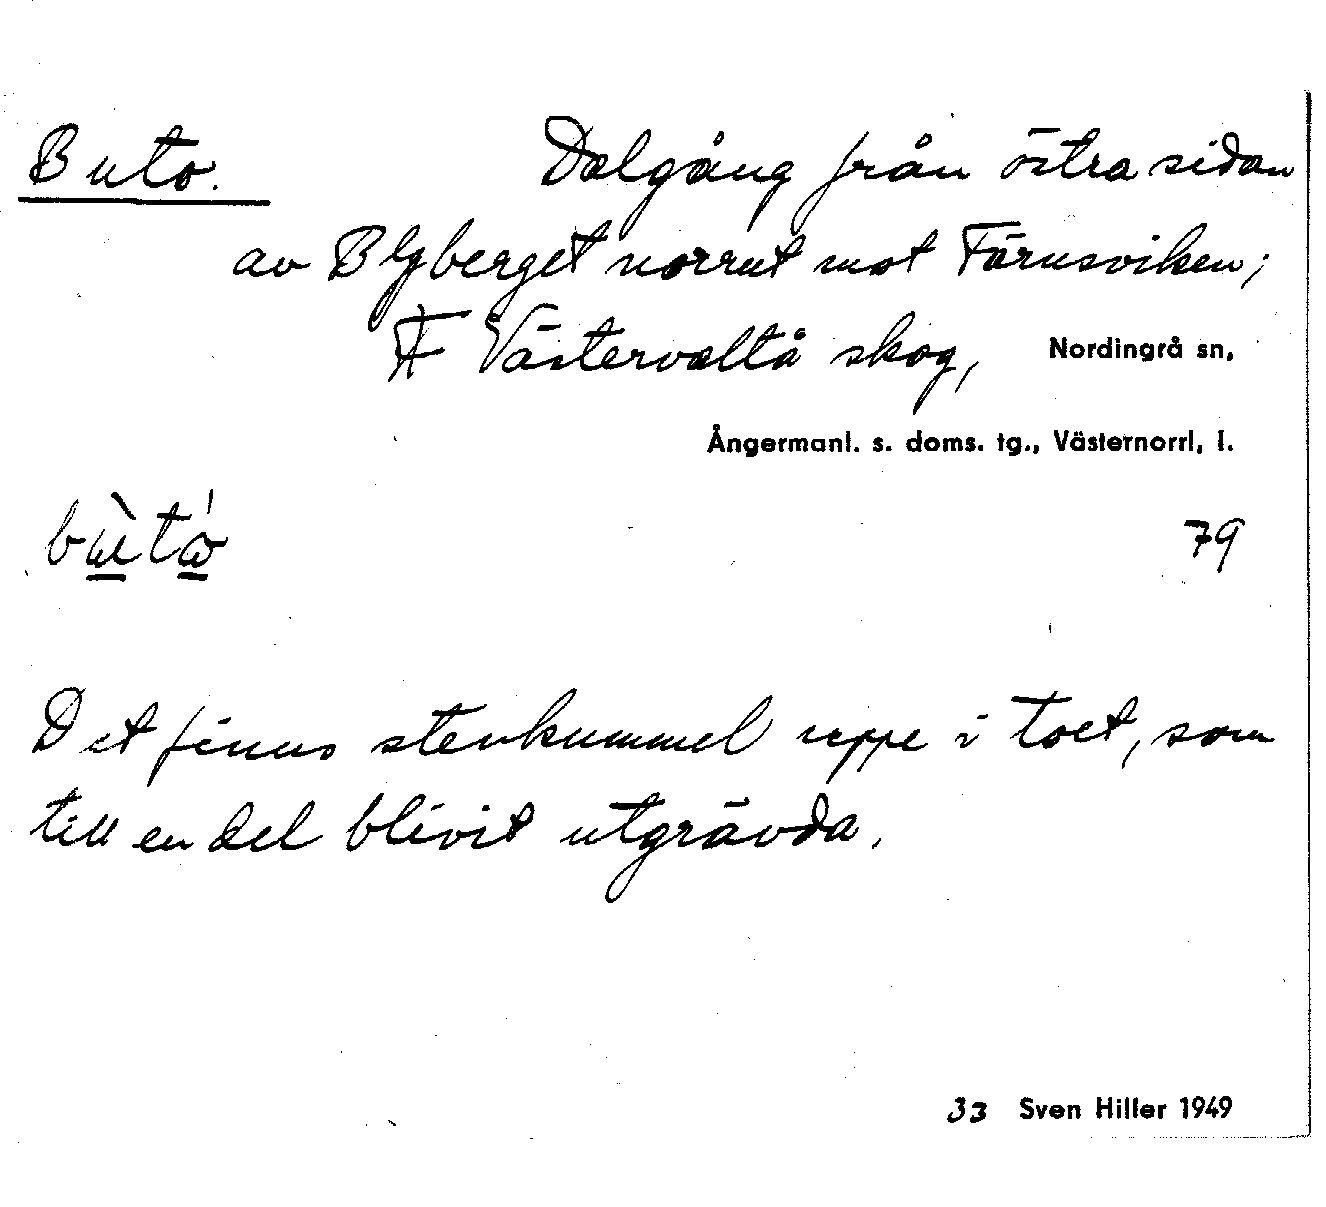 Buto. Dalgång från östra sidan
av Blyberget norrut mot Färnsviken;
Västervaltå skog, Nordingrå sn,
Ångermanl. s. doms. tg., Västernorrl, l.
79
Det finns stenkummel uppe i toet, som
till en del blivit utgrävda.
33 Sven Hiller 1949